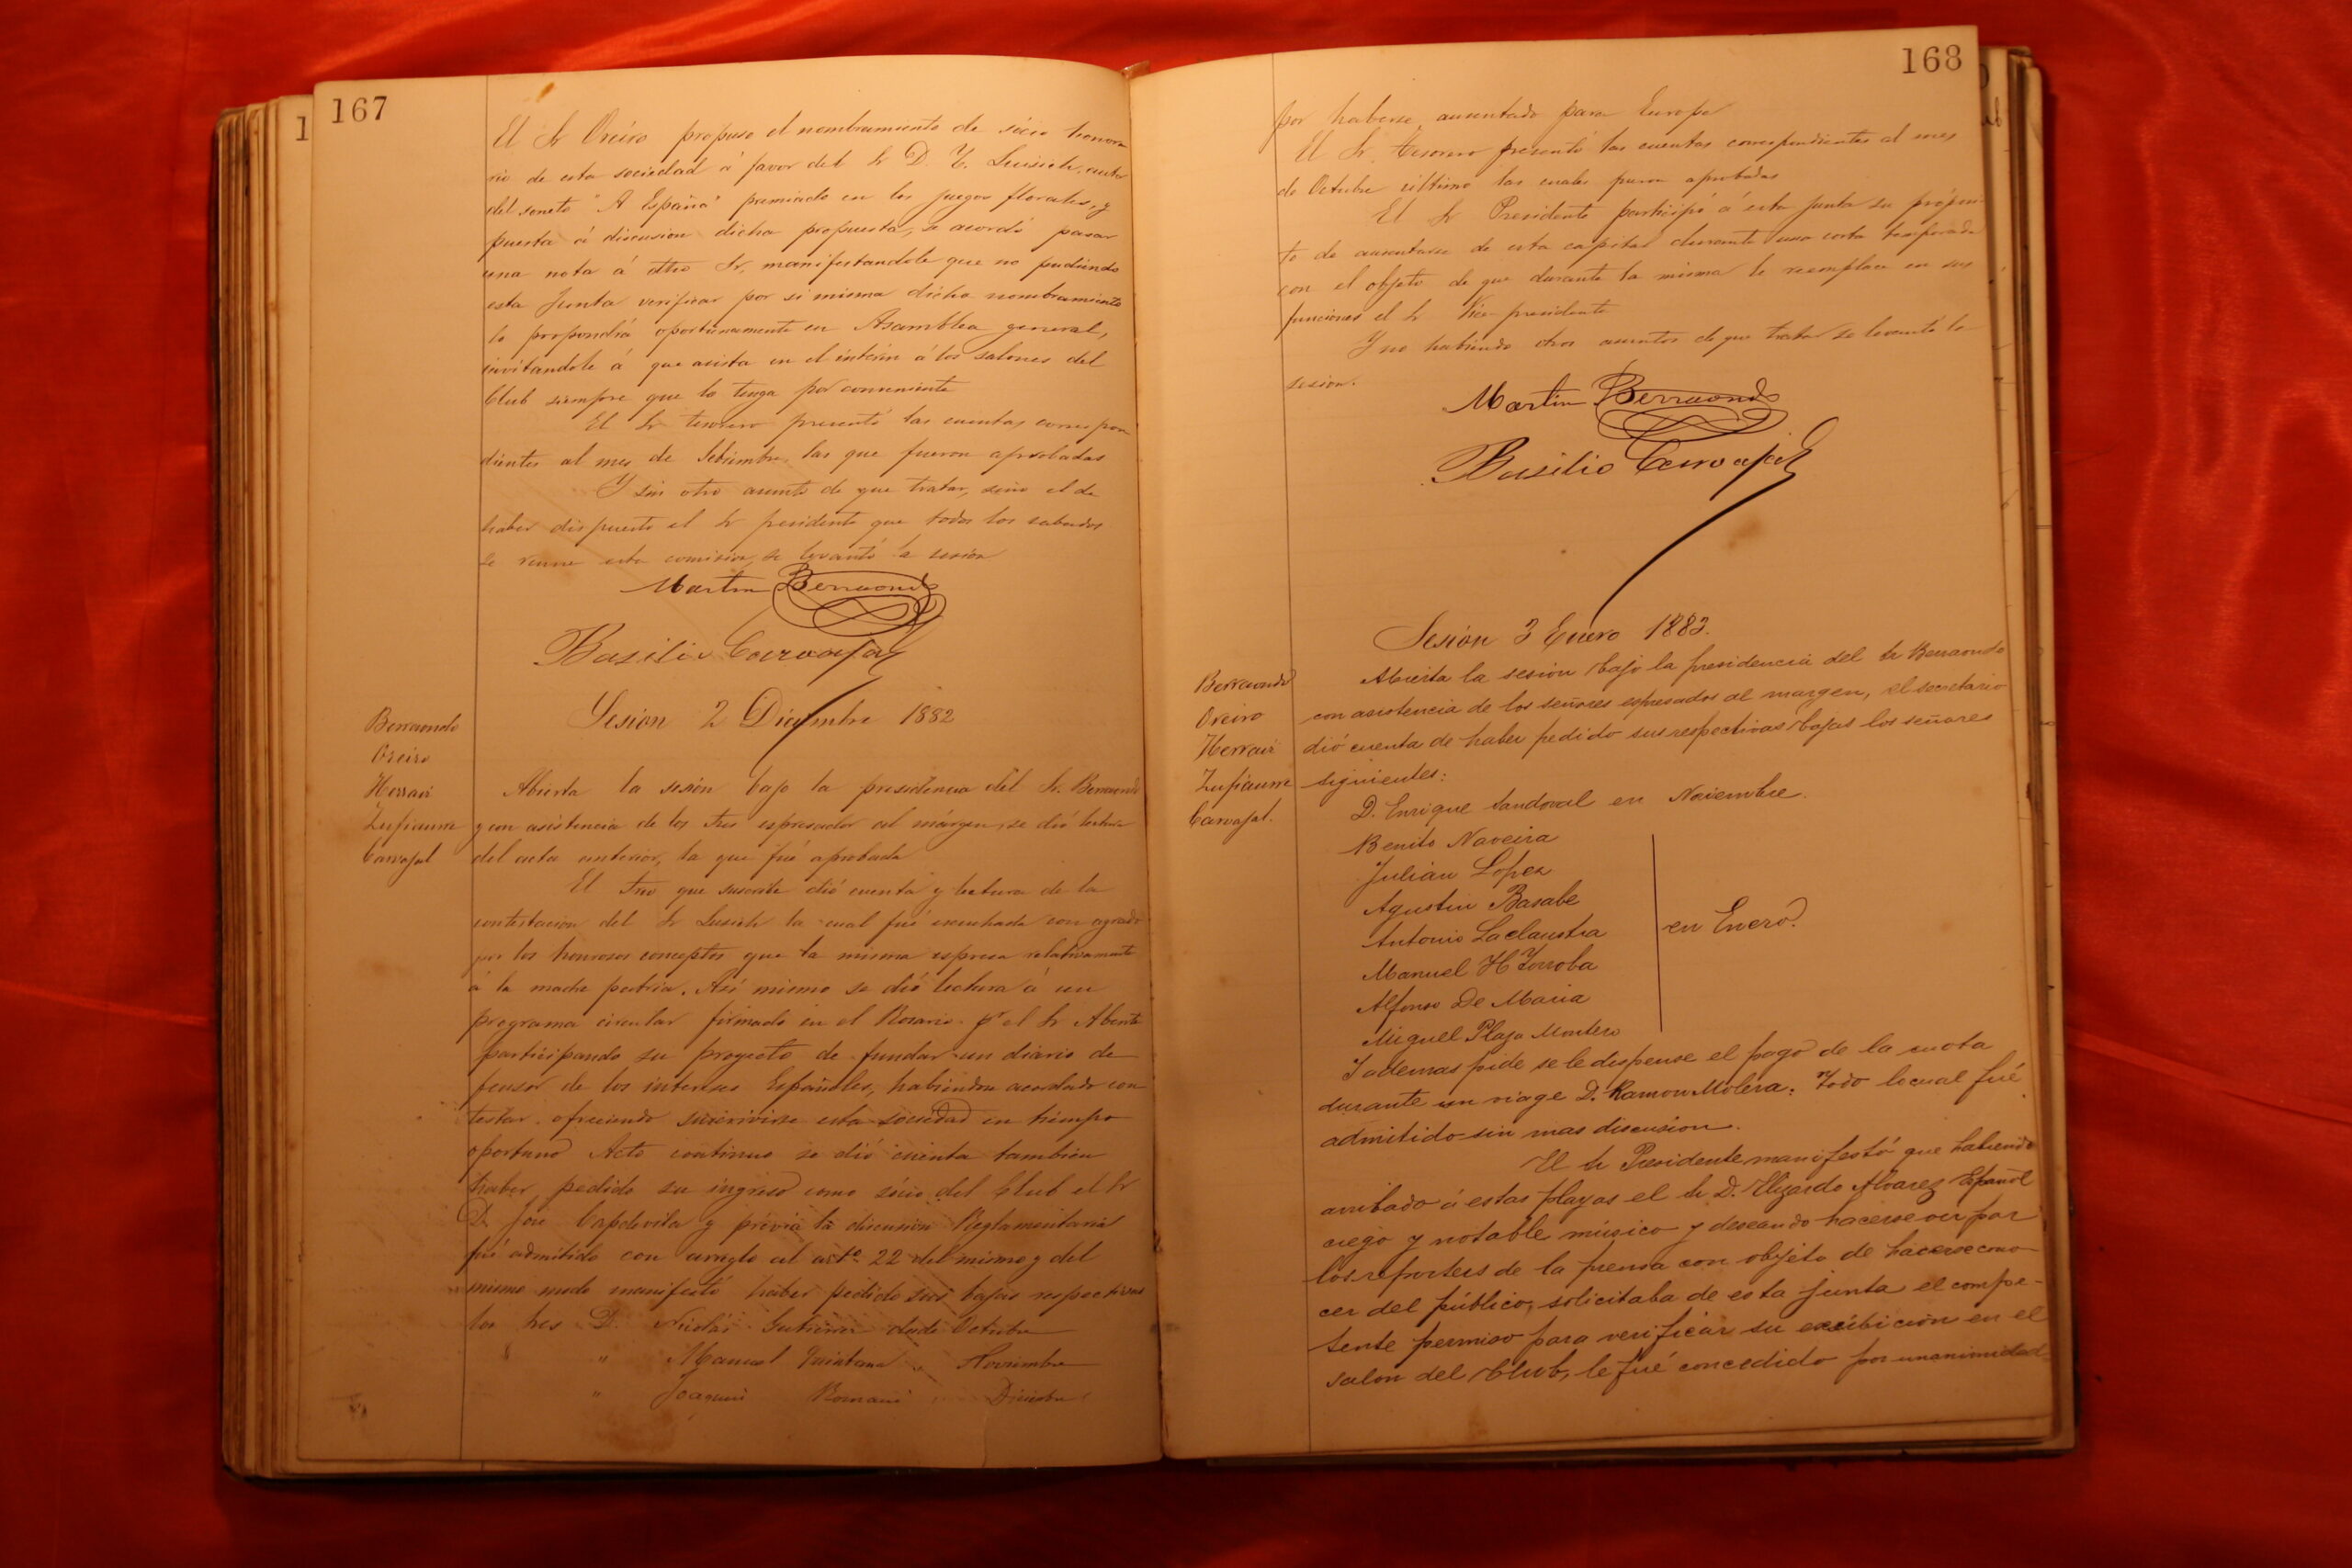 167
El Sr Oreiro propuso el nombramiento de sócio honora
rio de esta sociedad á favor del Sr D. Lusich, autor
del soneto "A España" premiado en los juegos florales, y
puesta á discusion dicha propuesta, se acordó pasar
una nota á dho Sr, manifestandole que no pudiendo
esta Junta verificar por si misma dicho nombramiento
lo propondrá oportunamente en Asamblea general,
invitándole á que asista en el intérin á los salones del
Club siempre que lo tenga por conveniente
El Sr tesorero presentó las cuentas correspon
dientes al mes de Setiembre las que fueron aprobadas
Y sin otro asunto de que tratar, sino el de
haber dispuesto el Sr presidente que todos los sabados
se reuna esta comision, se levantó la sesión
Martin Berraondo
Basilio Carvajal
Sesion 2 Diciembre 1882
Berraondo
Oreiro
Herraiz
Zufiaurre
Carvajal
Abierta la sesión bajo la presidencia del Sr. Berraondo
y con asistencia de los Sres espresados al márgen, se dió lectura
del acta anterior, la que fué aprobada
El Srio que suscribe dió cuenta y lectura de la
contestacion del Sr Lusich la cual fué escuchada con agrado
por los honrosos conceptos que la misma espresa relativamente
á la madre patria. Asi mismo se dió lectura á un
programa circular firmado en el Rosario pr el Sr
participando su proyecto de fundar un diario de
fensor de los intereses Españoles, habiendose acordado con
testar ofreciendo suscrivirse esta sociedad en tiempo
oportuno Acto continuo se dió cuenta tambien
haber pedido su ingreso como sócio del Club el Sr
D. José Capdevila y prévia la discusion Reglamentaria
fué admitido con arreglo al arto 22 del mismo y del
mismo modo manifestó haber pedido sus bajas respectivas
los Sres D. Nicolás Gutierrez desde Octubre
" Manuel Quintana " Noviembre
" Joaquin Romani " Diciembre
168
por haberse ausentado para Europa
El Sr. tesorero presentó las cuentas correspondientes al mes
de Octubre último las cuales fueron aprobadas
El Sr Presidente participó á esta junta su própósi
to de ausentarse de esta capital durante una corta temporada
con el objeto de que durante la misma le reemplace en sus
funciones el Sr Vice-presidente
Y no habiendo otros asuntos de que tratar se levantó la
sesion.
Martin Berraondo
Basilio Carvajal
Sesión 3 Enero 1883.
Berraondo
Oreiro
Herraiz
Zufiaurre
Carvajal.
Abierta la sesion bajo la presidencia del Sr Berraondo
con asistencia de los señores espresados al margen, el secretario
dió cuenta de haber pedido sus respectivas bajas los señores
siguientes:
D. Enrique Sandoval en Noviembre.
Benito Naveira
Julian Lopez
Agustin Basabe
Antonio Laclaustra
en Enero.
Manuel H Torroba
Alfonso De Maria
Miguel Plaza Montero
Y ademas pide se le dispense el pago de la cuota
durante un viage D. Ramon Molera. Todo lo cual fué
admitido sin mas discusion.
El Sr Presidente manifestó que habiendo
arribado á estas playas el Sr D. Elizardo Alvarez Español
ciego y notable músico y deseando hacerse oir por
los reporters de la prensa con objeto de hacerse cono-
cer del público, solicitaba de esta junta el compe-
tente permiso para verificar su exsibición en el
salon del Club, le fué concedido por unanimidad